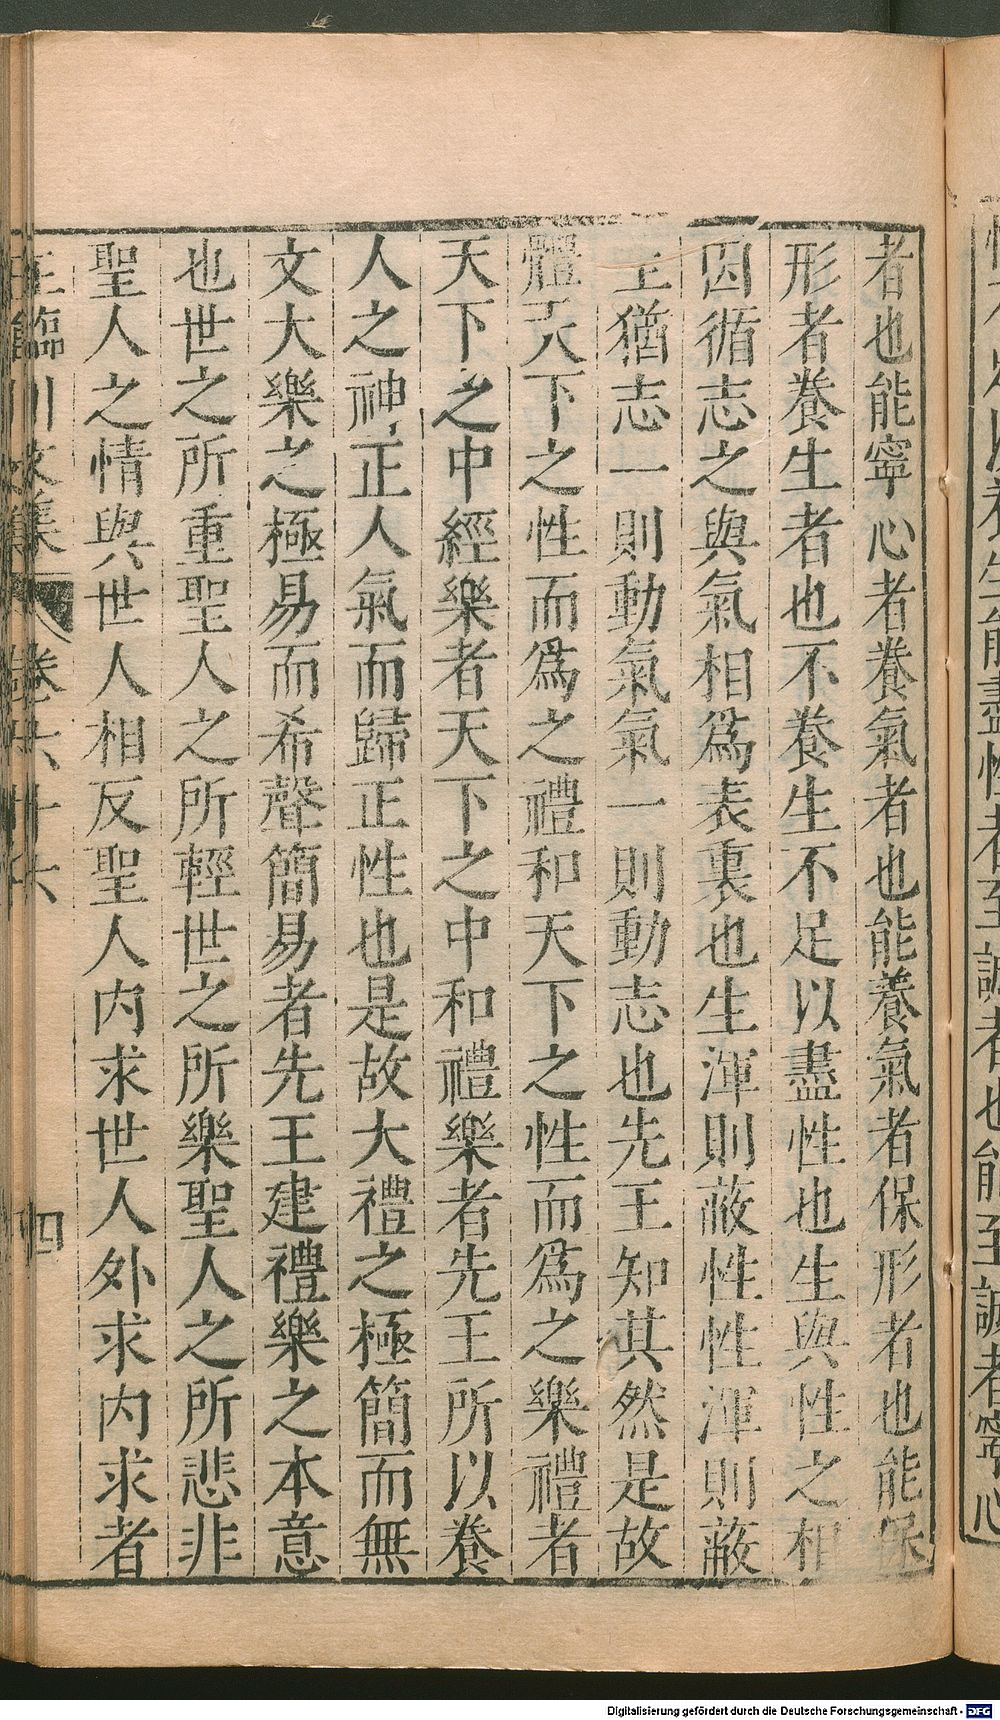 者也能寧心者養氣者也能養氣者保形者也能保
形者養生者也不養生不足以盡性也生與性之相
因循志之與氣相爲表裏也生渾則蔽性性渾則蔽
生猶志一則動氣氣一則動志也先王知其然是故
體天下之性而爲之禮和天下之性而爲之樂禮者
天下之中經樂者天下之中和禮樂者先王所以養
人之神正人氣而歸正性也是故大禮之極簡而無
文大樂之極易而希聲簡易者先王建禮樂之本意
也世之所重聖人之所輕世之所樂聖人之所悲非
聖人之情與世人相反聖人內求世人外求內求者
王臨川文集 卷六十六 四
Digitalisierung gefördert durch die Deutsche Forschungsgemeinschaft - DFG